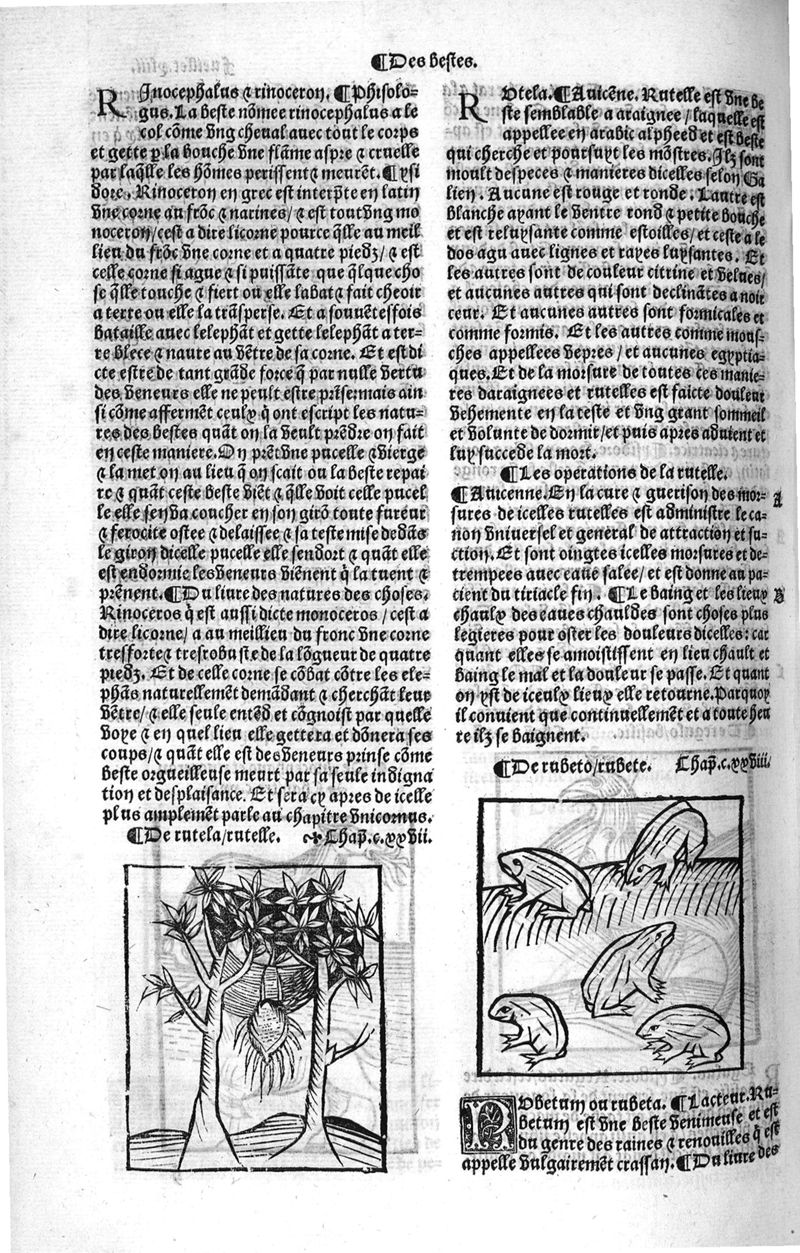 ¶Des bestes.
RJnocephalus ⁊ rinoceron. ¶Phisolo-
gus. La beste nõmee rinocephalus a le
col cõme vng cheual auec tout le corps
et gette p̱ la bouche vne flãme aspre ⁊ cruelle
par laq̃lle les hõmes perissent ⁊ meurẽt. ¶ysi
dore. Rinoceron en grec est interp̃te en latin
vne corne au frõc ⁊ narines/ ⁊ est tout vng mo
noceron/cest a dire licorne pource q̃lle au meil
lieu du frõc vne corne et a quatre piedz/ ⁊ est
celle corne si ague ⁊ si puissãte que q̃lque cho
se q̃lle touche ⁊ fiert ou elle labat ⁊ fait cheoir
a terre ou elle la trãsperse. Et a souuẽtesfois
bataille auec lelephãt et gette lelephãt a ter-
re blece ⁊ naure au vẽtre de sa corne. Et est di
cte estre de tant grãde force q̃ par nulle vertu
des veneurs elle ne peult estre prĩse mais ain
si cõme afferment ceulx q̃ ont escript les natu-
res des bestes quãt on la veult prẽdre on fait
en ceste maniere. On prẽt vne pucelle ⁊ vierge
⁊ la met on au lieu q̃ on scait ou la beste repai
re ⁊ quãt ceste beste viẽt ⁊ q̃lle voit celle pucel
le elle sen va coucher en son girõ toute fureur
⁊ ferocite ostee ⁊ delaissee ⁊ sa teste mise dedãs
le giron dicelle pucelle elle sendort ⁊ quãt elle
est endormie les veneurs viẽnent q̃ la tuent ⁊
prẽnent. ¶Du liure des natures des choses.
Rinoceros q̃ est aussi dicte monoceros / cest a
dire licorne/ a au meillieu du fronc vne corne
tresforte ⁊ tresrobuste de la lõgueur de quatre
piedz. Et de celle corne se cõbat cõtre les ele-
phãs naturellemẽt demãdant ⁊ cherchãt leur
vẽtre/ ⁊ elle seule entẽd et cõgnoist par quelle
voye ⁊ en quel lieu elle gettera et dõnera ses
coups/ ⁊ quãt elle est des veneurs prinse cõme
beste orgueilleuse meurt par sa seule indigna
tion et desplaisance. Et sera cy apres de icelle
plus amplemẽt parle au chapitre vnicornus.
¶De rutela/rutelle. Chap̃. c.xxvii.
ROtela. ¶Auicẽne. Rutelle est vne be
ste semblable a araignee / laquelle est
appellee en arabic alpheed et est beste
qui cherche et poursuyt les mõstres. Jlz sont
moult despeces ⁊ manieres dicelles selon Ga
lien. Aucune est rouge et ronde. Lautre est
blanche ayant le ventre rond ⁊ petite bouche
et est reluysante comme estoilles/ et ceste a le
dos agu auec lignes et rayes luysantes. Et
les autres sont de couleur citrine et velues/
et aucunes autres qui sont declinãtes a noir
ceur. Et aucunes autres sont formicales et
comme formis. Et les autres comme mous-
ches appellees vepres / et aucunes egyptia-
ques. Et de la morsure de toutes ces manie-
res daraignees et rutelles est faicte douleur
vehemente en la teste et vng grant sommeil
et volunte de dormir/et puis apres aduient et
luy succede la mort.
¶Les operations de la rutelle.
¶Auicenne. En la cure ⁊ guerison des mor- A
sures de icelles rutelles est administre le ca-
non vniuersel et general de attraction et su-
ction. Et sont oingtes icelles morsures et de-
trempees auec eaue salee/ et est donne au pa-
cient du tiriacle fin. ¶Le baing et les lieux B
chaulx des eaues chauldes sont choses plus
legieres pour oster les douleurs dicelles: car
quant elles se amoistissent en lieu chault et
baing le mal et la douleur se passe. Et quant
on yst de iceulx lieux elle retourne. Parquoy
il conuient que continuellemẽt et a toute heu
re ilz se baignent.
¶De rubeto/rubete. Chap̃. c.xxviii.
RVbetum ou rubeta. ¶Lacteur. Ru-
betum est vne beste venimeuse et est
du genre des raines ⁊ renouilles q̃ est
appelle vulgairemẽt crassan. ¶Du liure des